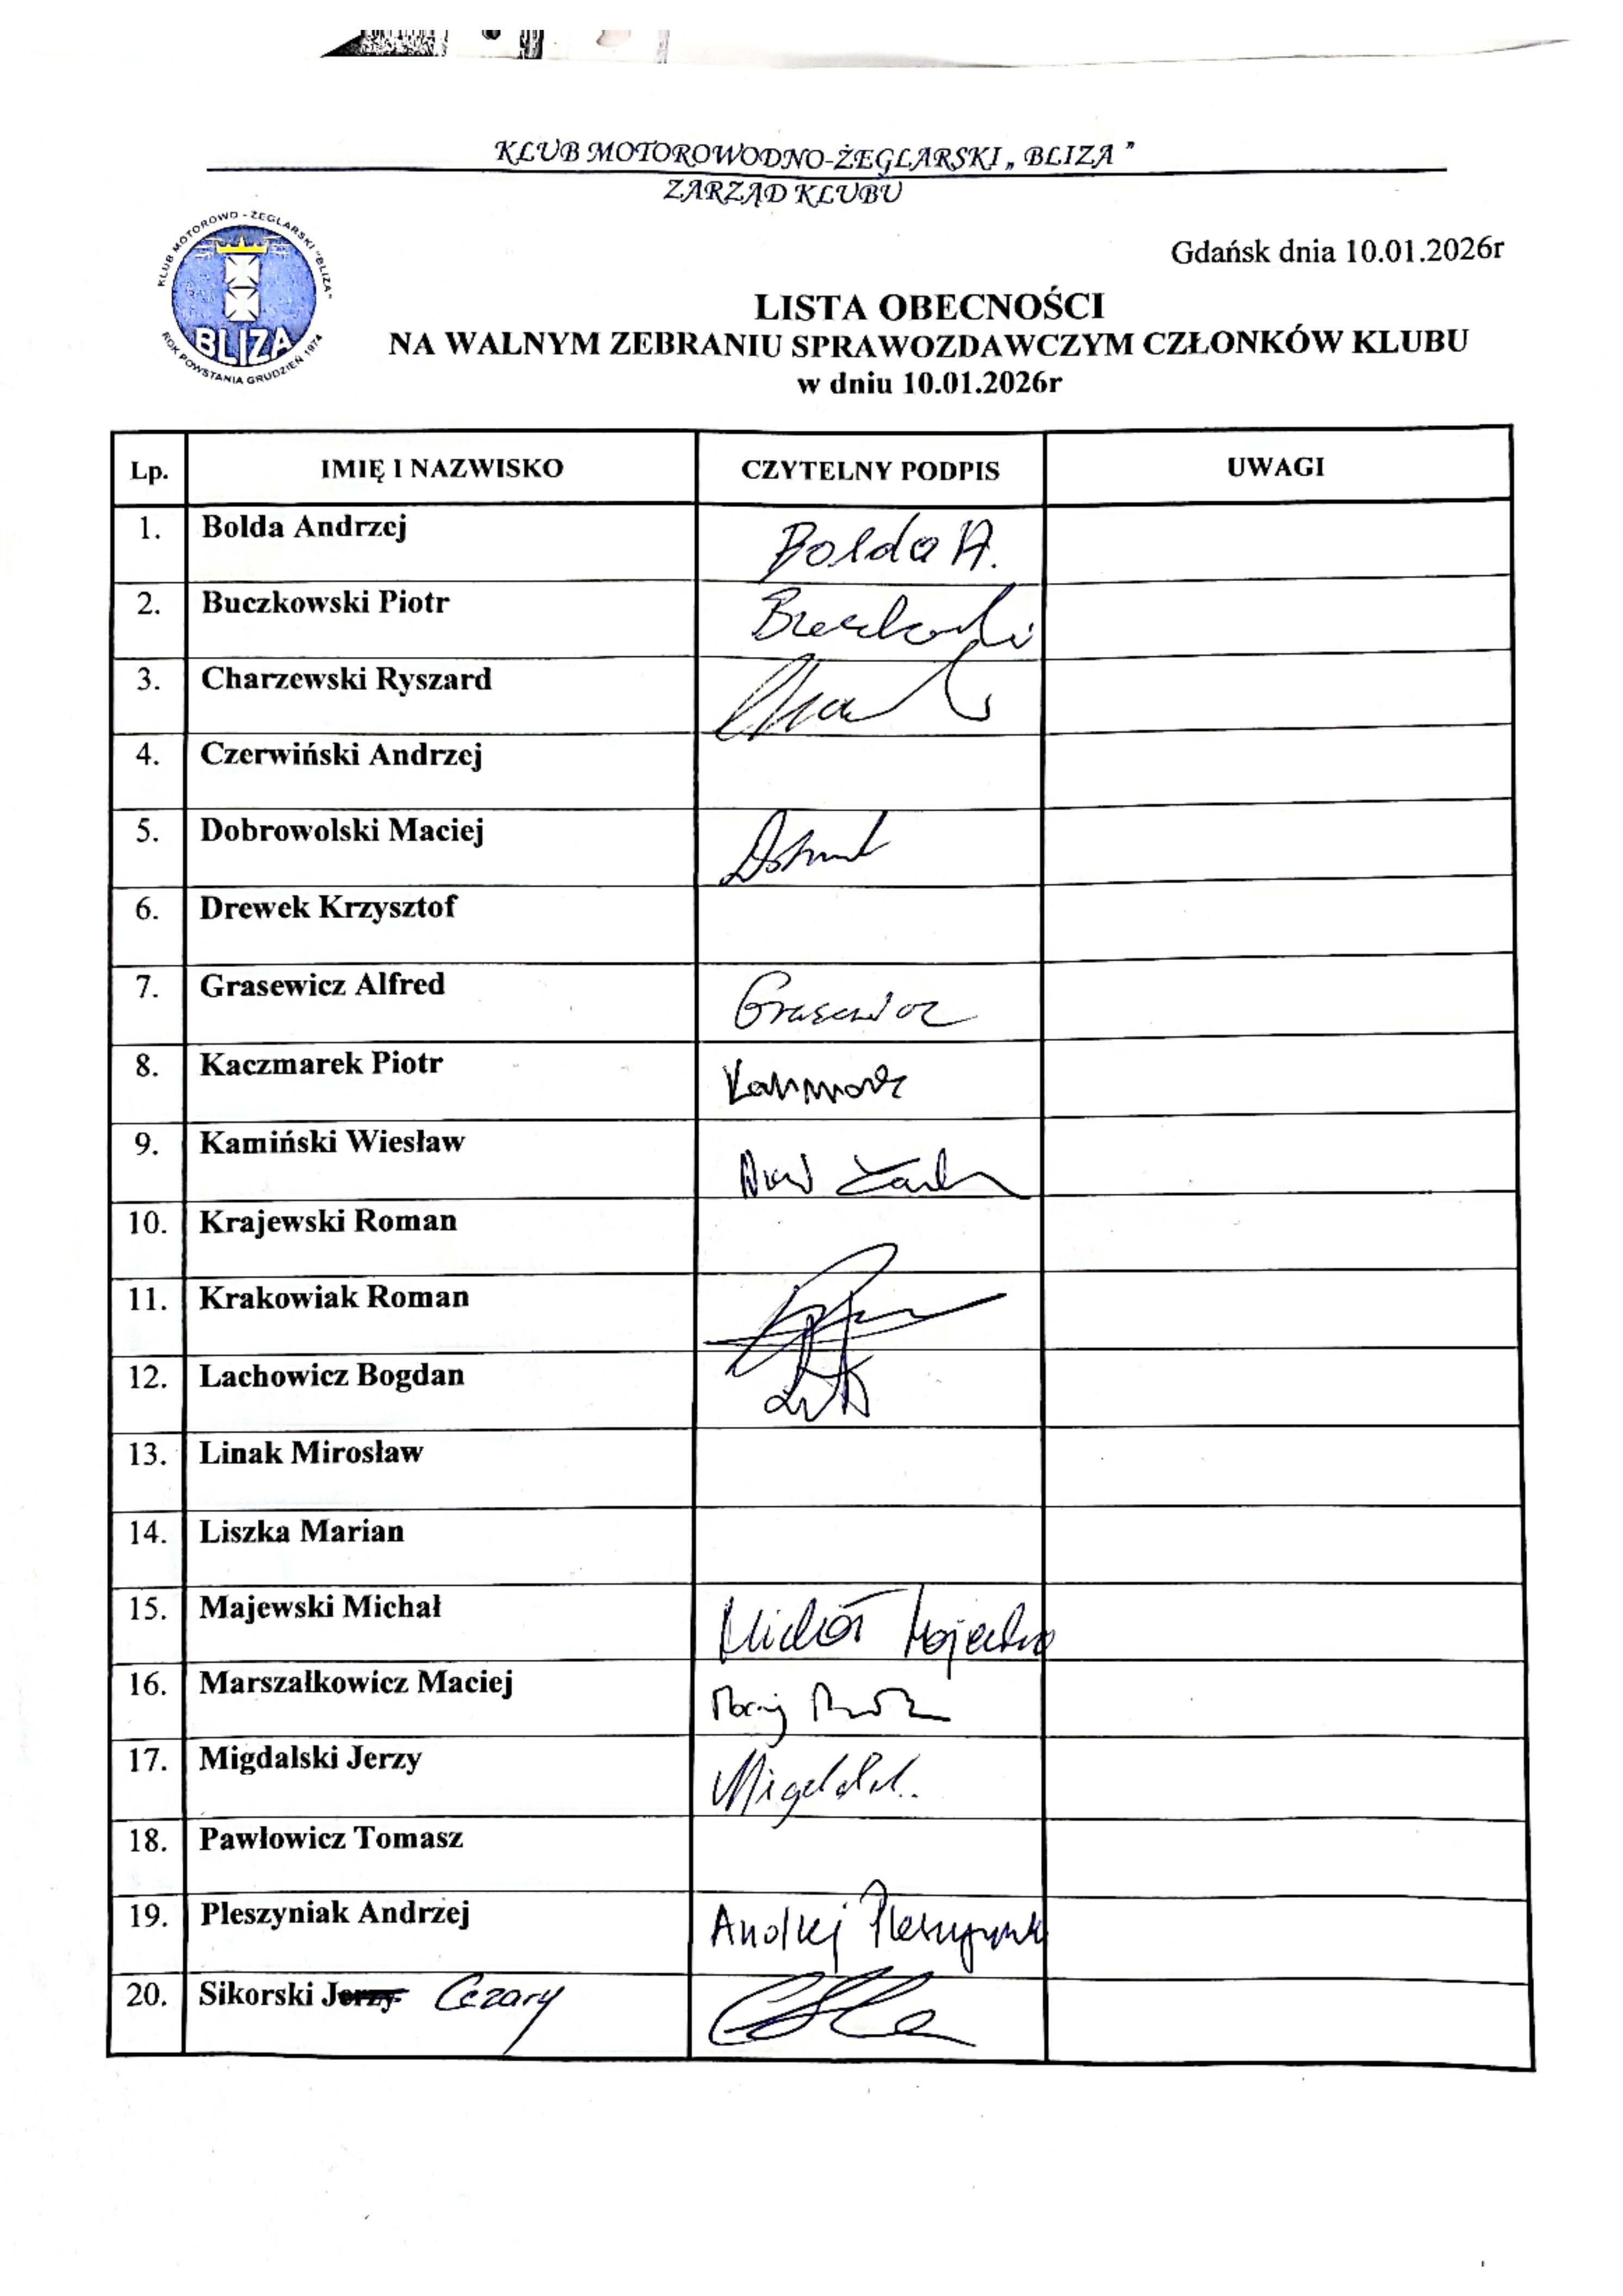 KLUB MOTOROWODNO-ŻEGLARSKI „ BLIZA ”
ZARZĄD KLUBU
KLUB MOTOROWO - ŻEGLARSKI "BLIZA"
BLIZA
ROK POWSTANIA GRUDZIEŃ 1974
Gdańsk dnia 10.01.2026r
LISTA OBECNOŚCI
NA WALNYM ZEBRANIU SPRAWOZDAWCZYM CZŁONKÓW KLUBU
w dniu 10.01.2026r
Lp. IMIĘ I NAZWISKO CZYTELNY PODPIS UWAGI
1. Bolda Andrzej Bolda A.
2. Buczkowski Piotr
3. Charzewski Ryszard
4. Czerwiński Andrzej
5. Dobrowolski Maciej
6. Drewek Krzysztof
7. Grasewicz Alfred Grasewicz
8. Kaczmarek Piotr
9. Kamiński Wiesław
10. Krajewski Roman
11. Krakowiak Roman
12. Lachowicz Bogdan
13. Linak Mirosław
14. Liszka Marian
15. Majewski Michał Michał
16. Marszałkowicz Maciej
17. Migdalski Jerzy
18. Pawłowicz Tomasz
19. Pleszyniak Andrzej Andrzej
20. Sikorski Jerzy Cezary